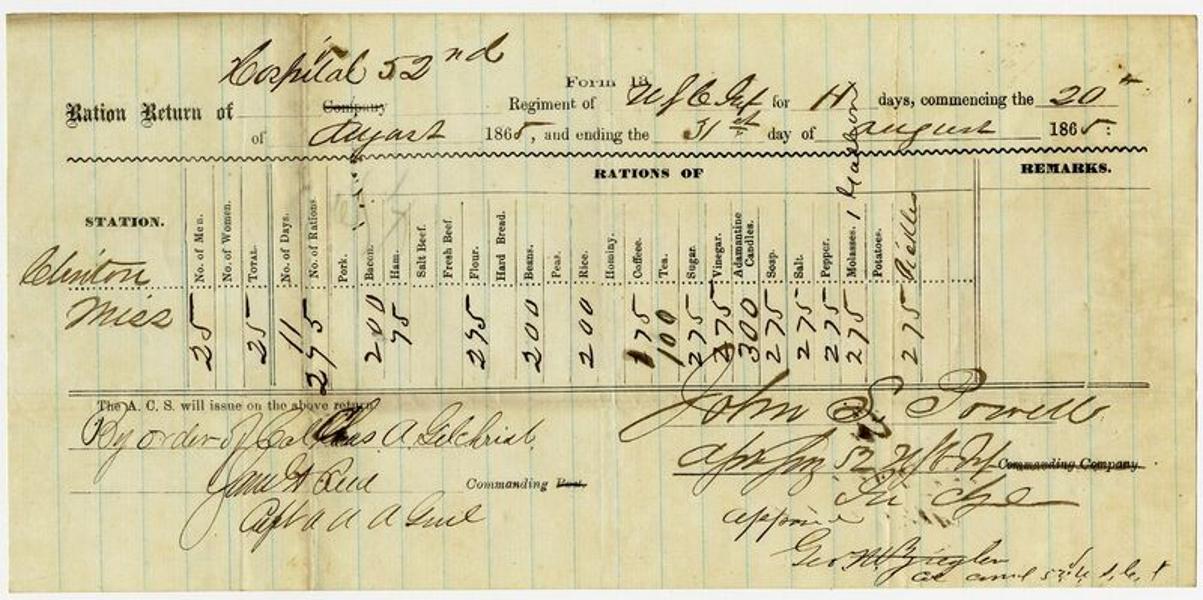 Form 13
Ration Return of Hospital 52nd Company Regiment of U S C Inf for 11 days, commencing the 20th
of August 1865, and ending the 31st day of August 1865:
RATIONS OF
REMARKS.
STATION. No. of Men. No. of Women. TOTAL. No. of Days. No. of Rations Pork. Bacon. Ham. Salt Beef. Fresh Beef. Flour. Hard Bread. Beans. Peas. Rice. Hominy. Coffeee. Tea. Sugar. Vinegar. Adamantine Candles. Soap. Salt. Pepper. Molasses. Potatoes. Pickles
Clinton
Miss 25 25 11 275 200 75 275 200 200 175 100 275 275 300 275 275 275 275 275
The A. C. S. will issue on the above return
By order of Col Chas A. Gilchrist
John S Powell
Commanding Post.
52 U S C Inf Commanding Company
In Chge
Capt A A A Genl
Geo M Ziegler
52d U. S. C. I